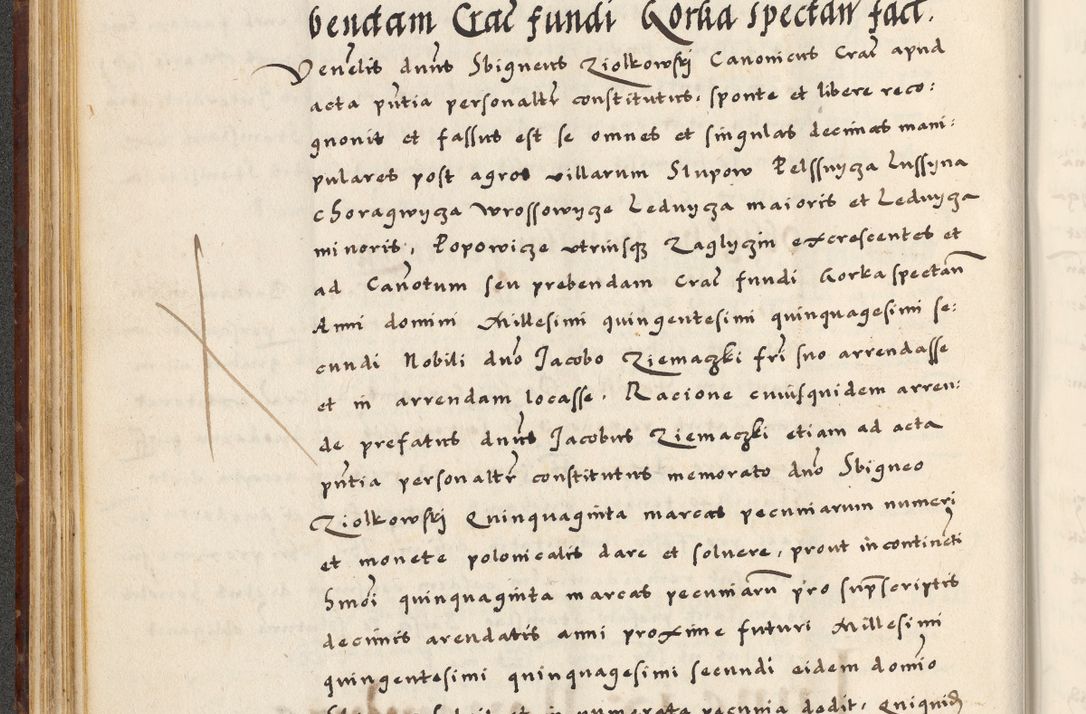 bendam Crac̃ fundi Gorka spectan̄ fact.
Ven̄elis dun̄s Sbigneus Ziolkowskj Canonicus Crac̃ apud
acta pn̄tia personalit̄r constitutus, sponte et libere reco:
gnouit et fassus est se omnes et singulas decimas mani:
pulares post agros villarum Slupow Pelssnycza Lussyna
choragwycza Wrossowycze Lednycza maioris et Lednycza
minoris, Popowicze vtriusq₃ Zaglyczin excrescentes et
ad Can̄otum seu prebendam Crac̃ fundi Gorka spectan̄
Anni domini Millesimi quingentesimi quinquagesimi se:
cundi Nobili dn̄o Jacobo Ziemaczki fr̄i suo arrendasse
et in arrendam locasse. Racione cuiusquidem arren:
de prefatus dun̄s Jacobus Ziemaczki etiam ad acta
pn̄tia personalit̄r constitutus memorato dn̄o Sbigneo
Ziolkowskj Quinquaginta marcas pecuniarum numeri
et monete polonicalis dare et soluere, prout in contineti
Sm̄di quinquaginta marcas pecuniaru̅ pro sup̄scriptis
decimis arendatis anni proxime futuri Millesimi
quingentesimi quinquagesimi secundi eidem domīo
et in numerata pecunia dedit, Quiquid̄